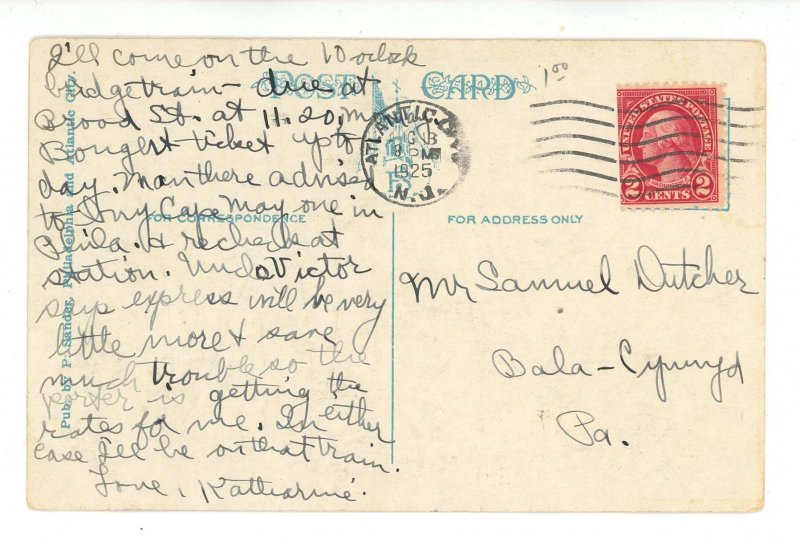 I'll come on the 10 o'clock
bridge train – due at
Broad St. at 11.20, m
Bought ticket up to
day. Man there advises
to buy Cape May one in
Phila. & recheck at
station. Uncle Victor
says express will be very
little more & save
much trouble so the
porter is getting the
rates for me. In either
case I'll be on that train.
Love, Katharine.
POST CARD
FOR CORRESPONDENCE
FOR ADDRESS ONLY
Pub. by P. Sander, Philadelphia and Atlantic City.
1 00
ATLANTIC CITY
8 PM
1925
N.J.
UNITED STATES POSTAGE
2 CENTS 2
Mr Samuel Dutcher
Bala-Cynwyd
Pa.